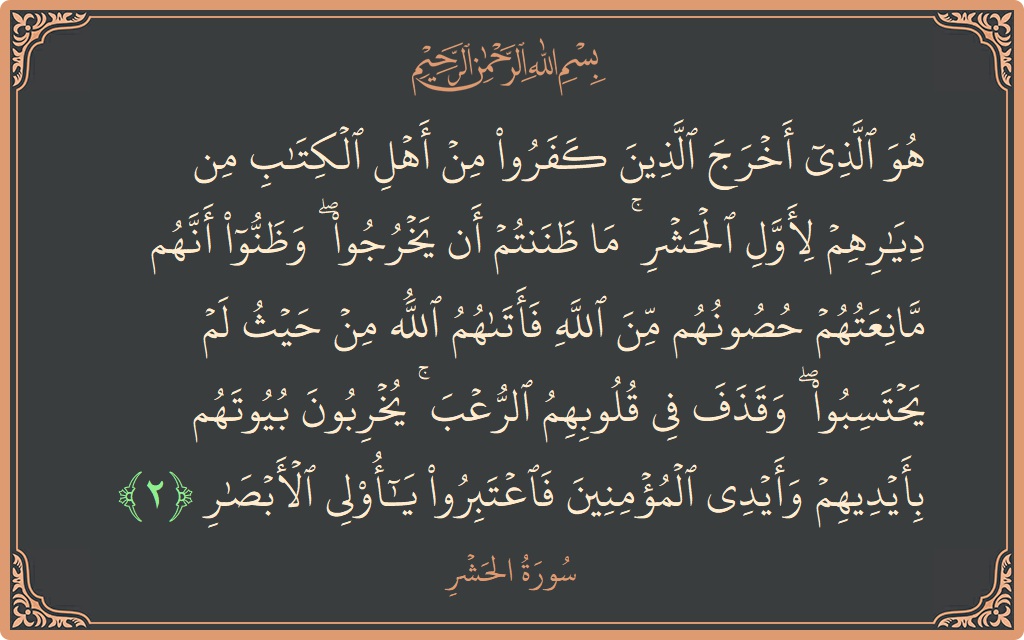 بِسْمِ اللهِ الرَّحْمٰنِ الرَّحِيْمِ
هُوَ ٱلَّذِىٓ أَخْرَجَ ٱلَّذِينَ كَفَرُوا۟ مِنْ أَهْلِ ٱلْكِتَـٰبِ مِن
دِيَـٰرِهِمْ لِأَوَّلِ ٱلْحَشْرِ ۚ مَا ظَنَنتُمْ أَن يَخْرُجُوا۟ ۖ وَظَنُّوٓا۟ أَنَّهُم
مَّانِعَتُهُمْ حُصُونُهُم مِّنَ ٱللَّهِ فَأَتَىٰهُمُ ٱللَّهُ مِنْ حَيْثُ لَمْ
يَحْتَسِبُوا۟ ۖ وَقَذَفَ فِى قُلُوبِهِمُ ٱلرُّعْبَ ۚ يُخْرِبُونَ بُيُوتَهُم
بِأَيْدِيهِمْ وَأَيْدِى ٱلْمُؤْمِنِينَ فَٱعْتَبِرُوا۟ يَـٰٓأُو۟لِى ٱلْأَبْصَـٰرِ ﴿٢﴾
سُورَةُ الحَشْرِ